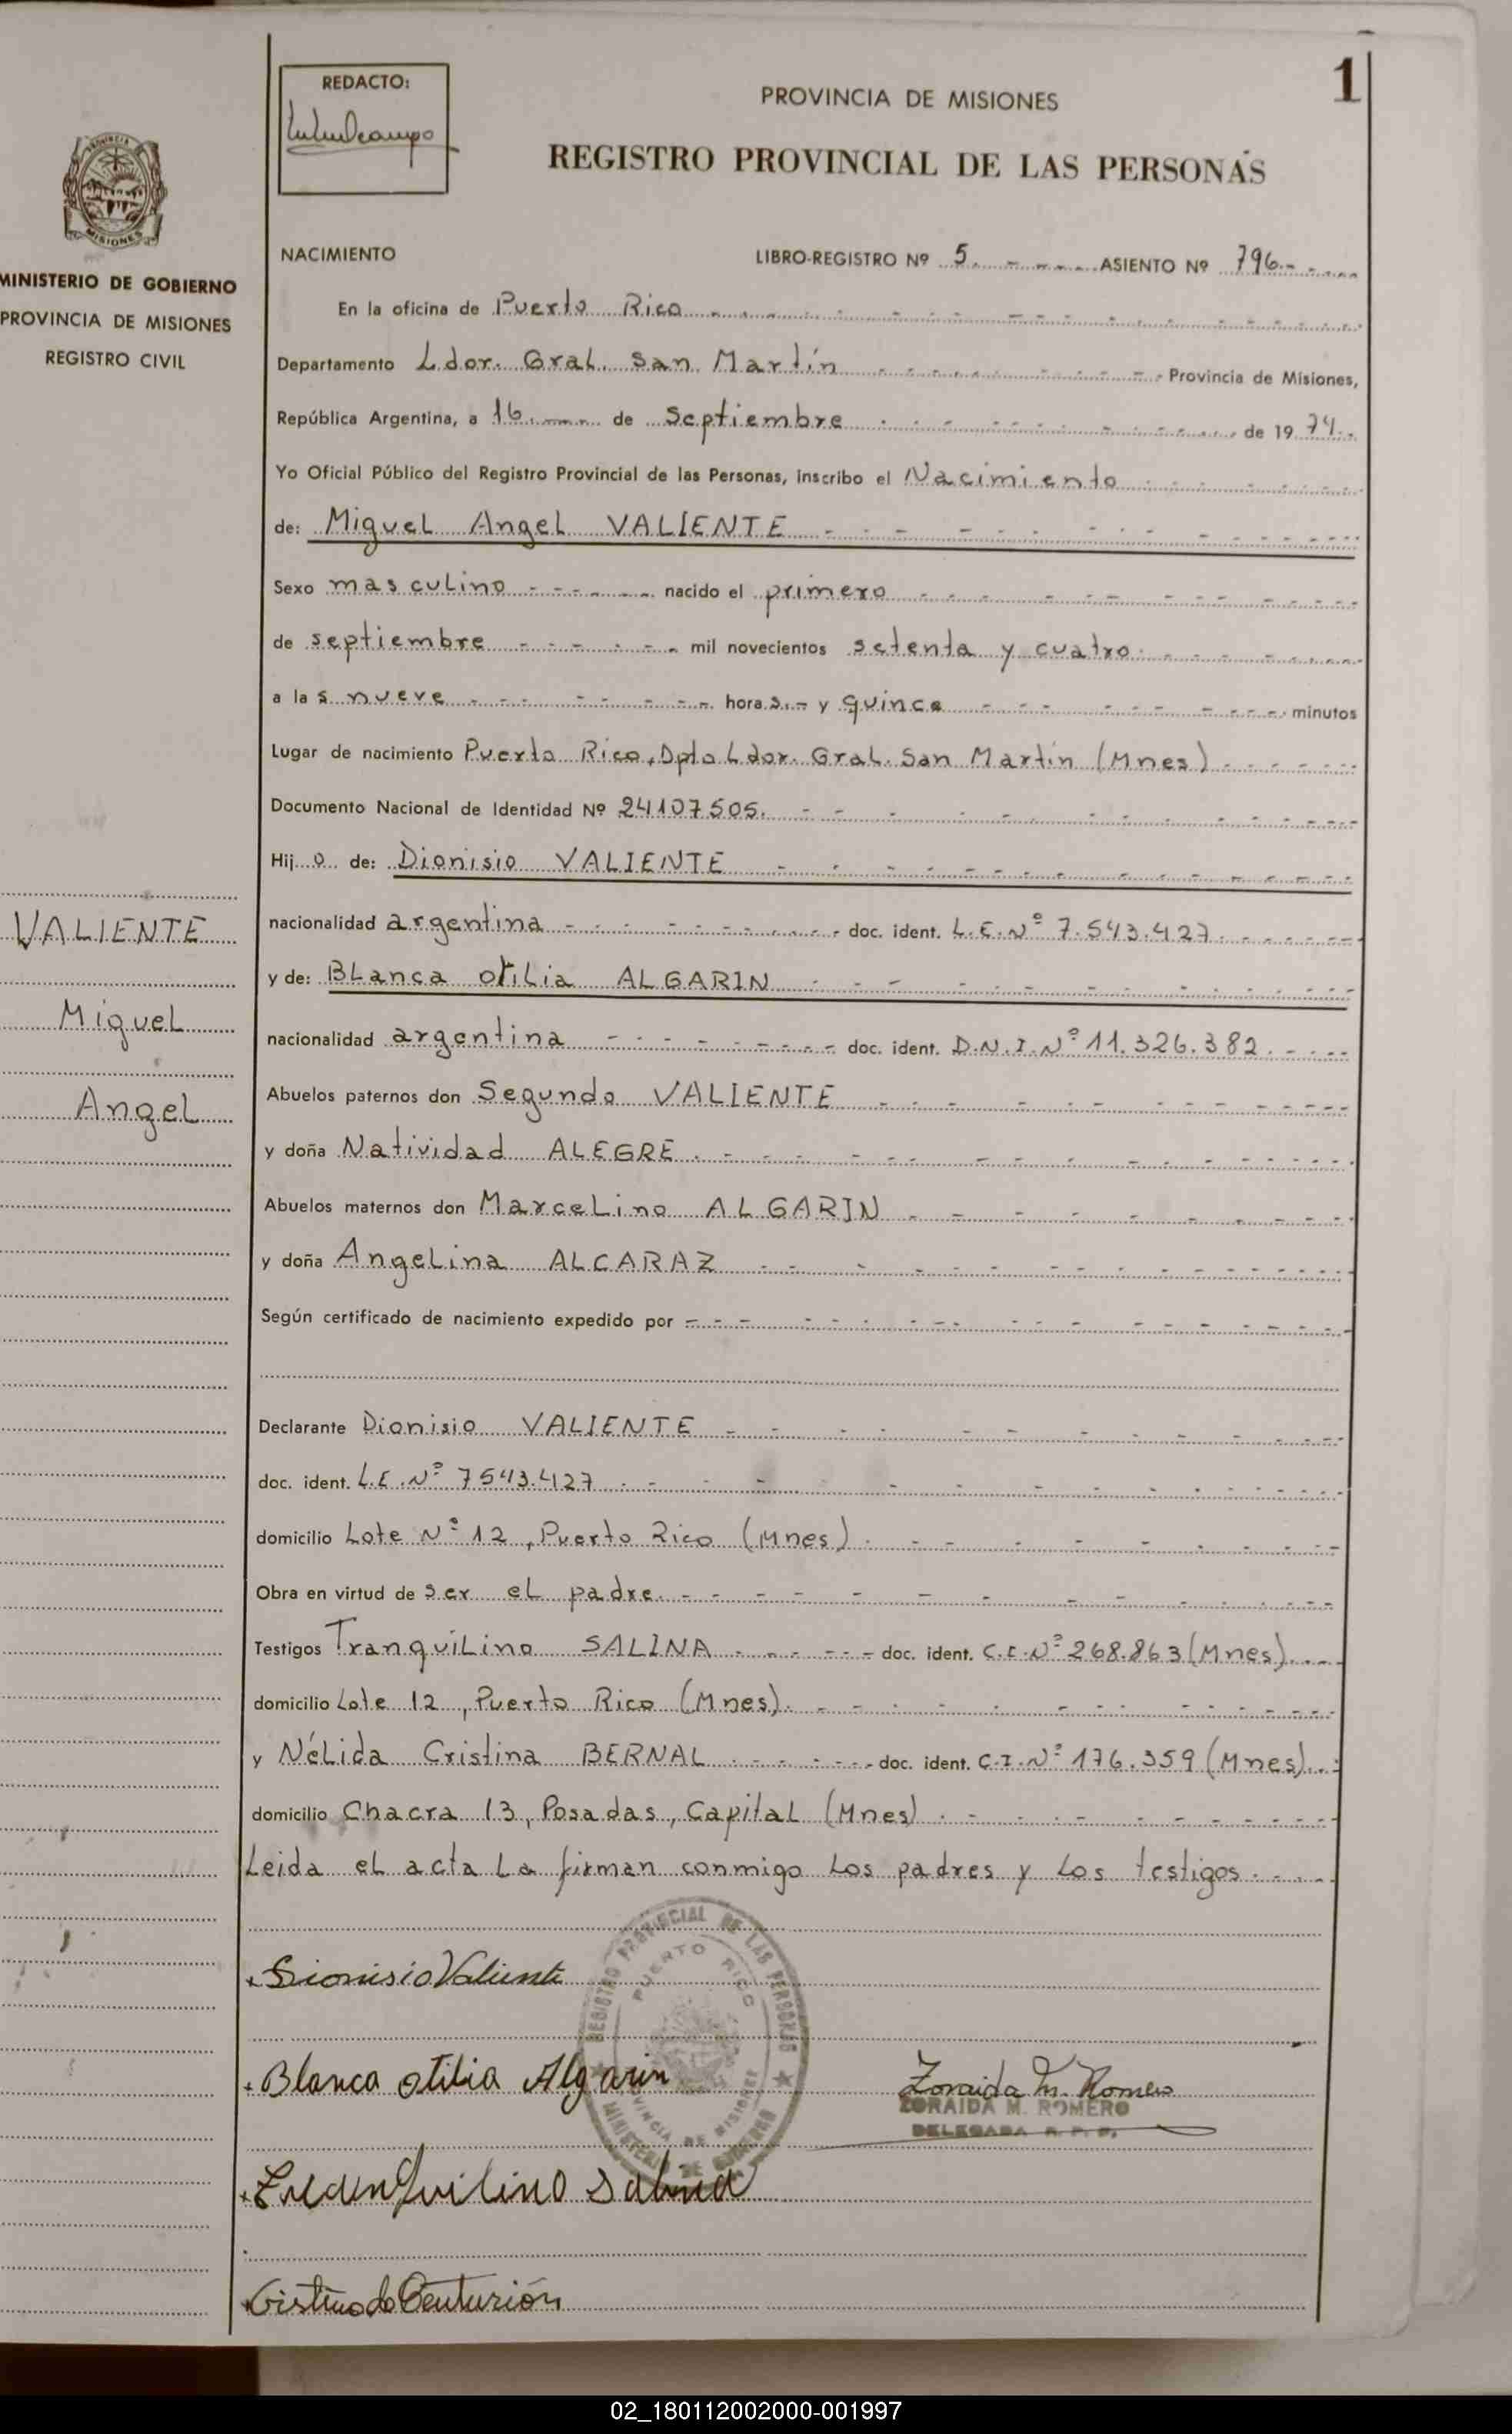 1
REDACTO:
PROVINCIA DE MISIONES
REGISTRO PROVINCIAL DE LAS PERSONAS
PROVINCIA
MISIONES
MINISTERIO DE GOBIERNO
PROVINCIA DE MISIONES
REGISTRO CIVIL
NACIMIENTO LIBRO-REGISTRO Nº 5 ASIENTO Nº 796
En la oficina de Puerto Rico
Departamento Ldor. Gral. San Martín Provincia de Misiones,
República Argentina, a 16 de Septiembre de 19 74
Yo Oficial Público del Registro Provincial de las Personas, inscribo el Nacimiento
de: Miguel Angel VALIENTE
Sexo masculino nacido el primero
de septiembre mil novecientos setenta y cuatro
a las nueve horas y quince minutos
Lugar de nacimiento Puerto Rico, Dpto Ldor. Gral. San Martín (Mnes)
Documento Nacional de Identidad Nº 24107505.
Hijo de: Dionisio VALIENTE
nacionalidad argentina doc. ident. L.E. Nº 7.543.427
y de: Blanca otilia ALGARIN
nacionalidad argentina doc. ident. D.N.I. Nº 11.326.382
Abuelos paternos don Segundo VALIENTE
y doña Natividad ALEGRE
Abuelos maternos don Marcelino ALGARIN
y doña Angelina ALCARAZ
Según certificado de nacimiento expedido por
Declarante Dionisio VALIENTE
doc. ident. L.E. Nº 7543.427
domicilio Lote Nº 12, Puerto Rico (Mnes)
Obra en virtud de ser el padre
Testigos Tranquilino SALINA doc. ident. C.I. Nº 268.863 (Mnes)
domicilio Lote 12, Puerto Rico (Mnes)
y Nélida Cristina BERNAL doc. ident. C.I. Nº 176.359 (Mnes)
domicilio Chacra 13, Posadas, Capital (Mnes)
Leida el acta la firman conmigo los padres y los testigos
VALIENTE
Miguel
Angel
REGISTRO PROVINCIAL DE LAS PERSONAS
PUERTO RICO
PROVINCIA DE MISIONES
MINISTERIO DE GOBIERNO
Dionisio Valiente
Blanca otilia Algarin
Zoraida M. Romero
ZORAIDA M. ROMERO
DELEGADA R. P. P.
Salina
Centurión
02_180112002000-001997